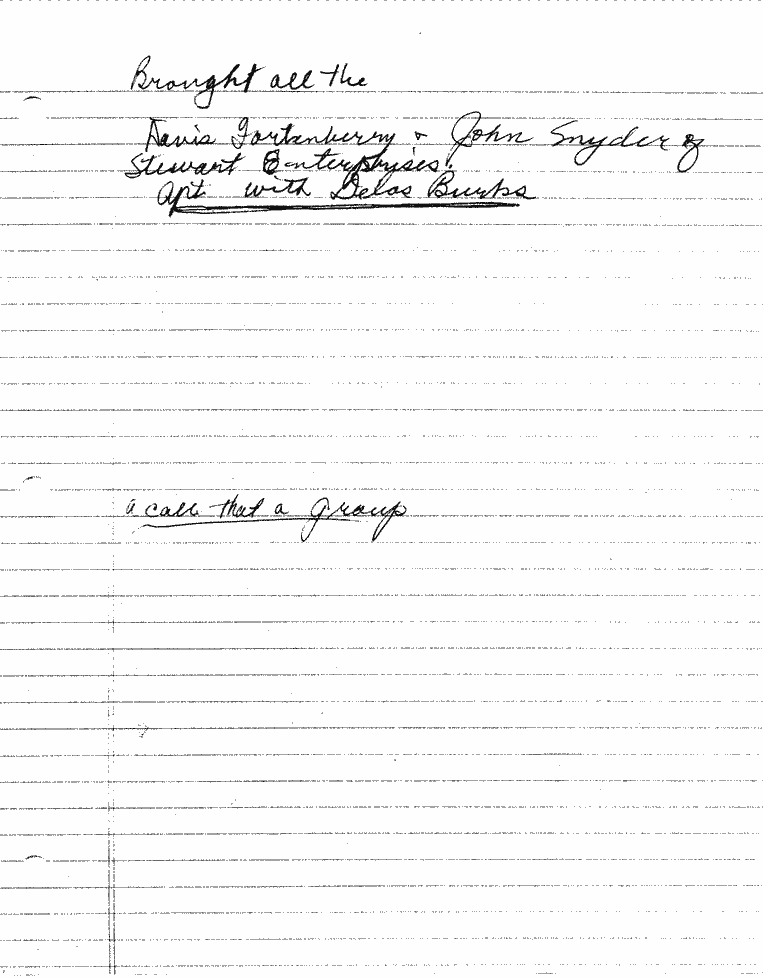 Brought all the
Davis Fortenberry + John Snyder of
Stewart Enterprises.
Apt. with Delos Burks
a call that a group